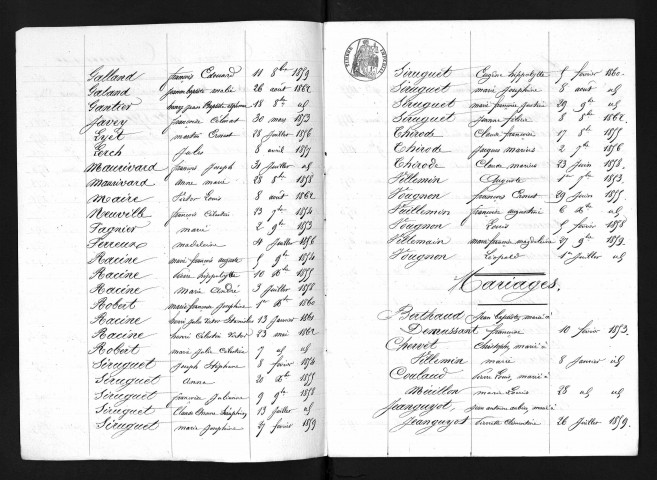 Galland françois Édouard 11 8bre 1859
Galand 26 août 1862
Gantier 18 8bre id
Javey françoise 30 mars 1853
Lyet martin Ernest 28 juillet 1856
Lerch Jules 8 avril 1857
Maurivard françois Joseph 31 juillet id
Maurivard anne marie 28 8bre 1858
Maire Victor Louis 8 août 1862
Neuville françois Célestin 23 7bre 1854
Pagnier marie 2 9bre 1853
Perreux madeleine 14 juillet 1856
Racine marie françois auguste 5 9bre 1854
Racine Pierre hippolyte 10 Xbre 1855
Racine marie André 3 juillet 1858
Robert marie françoise Joséphine 1er Xbre 1860
Racine henri Jules Victor Stanislas 13 janvier 1861
Racine henri Célestin Victor 23 mai 1862
Robert marie Julie Célestine 7 id id
Siruguet Joseph Stéphane 8 février 1854
Siruguet Anna 20 Xbre 1855
Siruguet françoise Julienne 9 9bre 1858
Siruguet Claude 13 juillet id
Siruguet marie Joséphine 27 février 1859
TIMBRE IMPERIAL
Siruguet Eugène hippolyte 5 février 1860
Siruguet marie Joséphine 8 août id
Siruguet marie françois Justin 29 9bre id
Siruguet Jeanne 8 8bre 1862
Thirode Claude françois 17 8bre 1855
Thirode Jacques marius 2 7bre 1856
Thirode Claude marius 23 juin 1858
Villemin Auguste 1er 7bre 1853
Vougnon françois Ernest 29 juin 1855
Vuillemin françois augustin 6 Xbre id
Vougnon Louis 5 février 1858
Villemain marie françoise magdeleine 27 9bre 1859
Vougnon Léopold 1er juillet id
Mariages.
Berthaud Jean Baptiste, marié à
Demussant françoise 10 février 1853
Chervet Christophe, marié à
Villemin marie 8 janvier id
Coulaud Pierre Louis, marié à
Meuillon marie Louise 25 id id
Jeanguyot, Jean antoine aubin, marié à
Jeanguyot Pierrette Clémentine 26 juillet 1859.